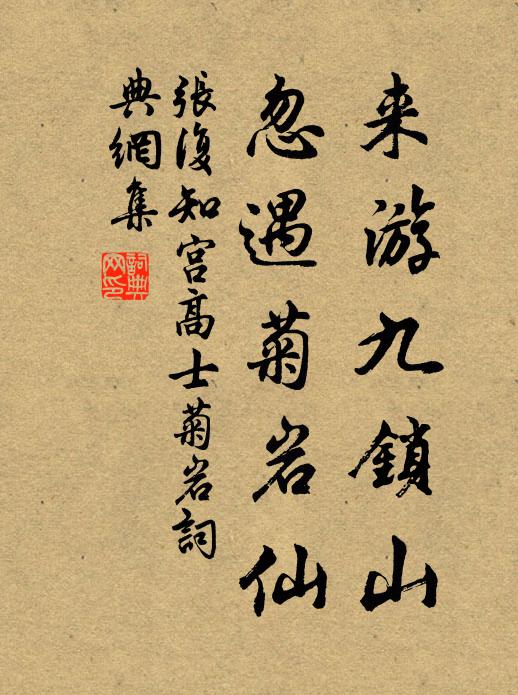 来游九鎖山
忽遇菊岩仙
張復知宮高士菊岩詞
典網集
詞典
网印